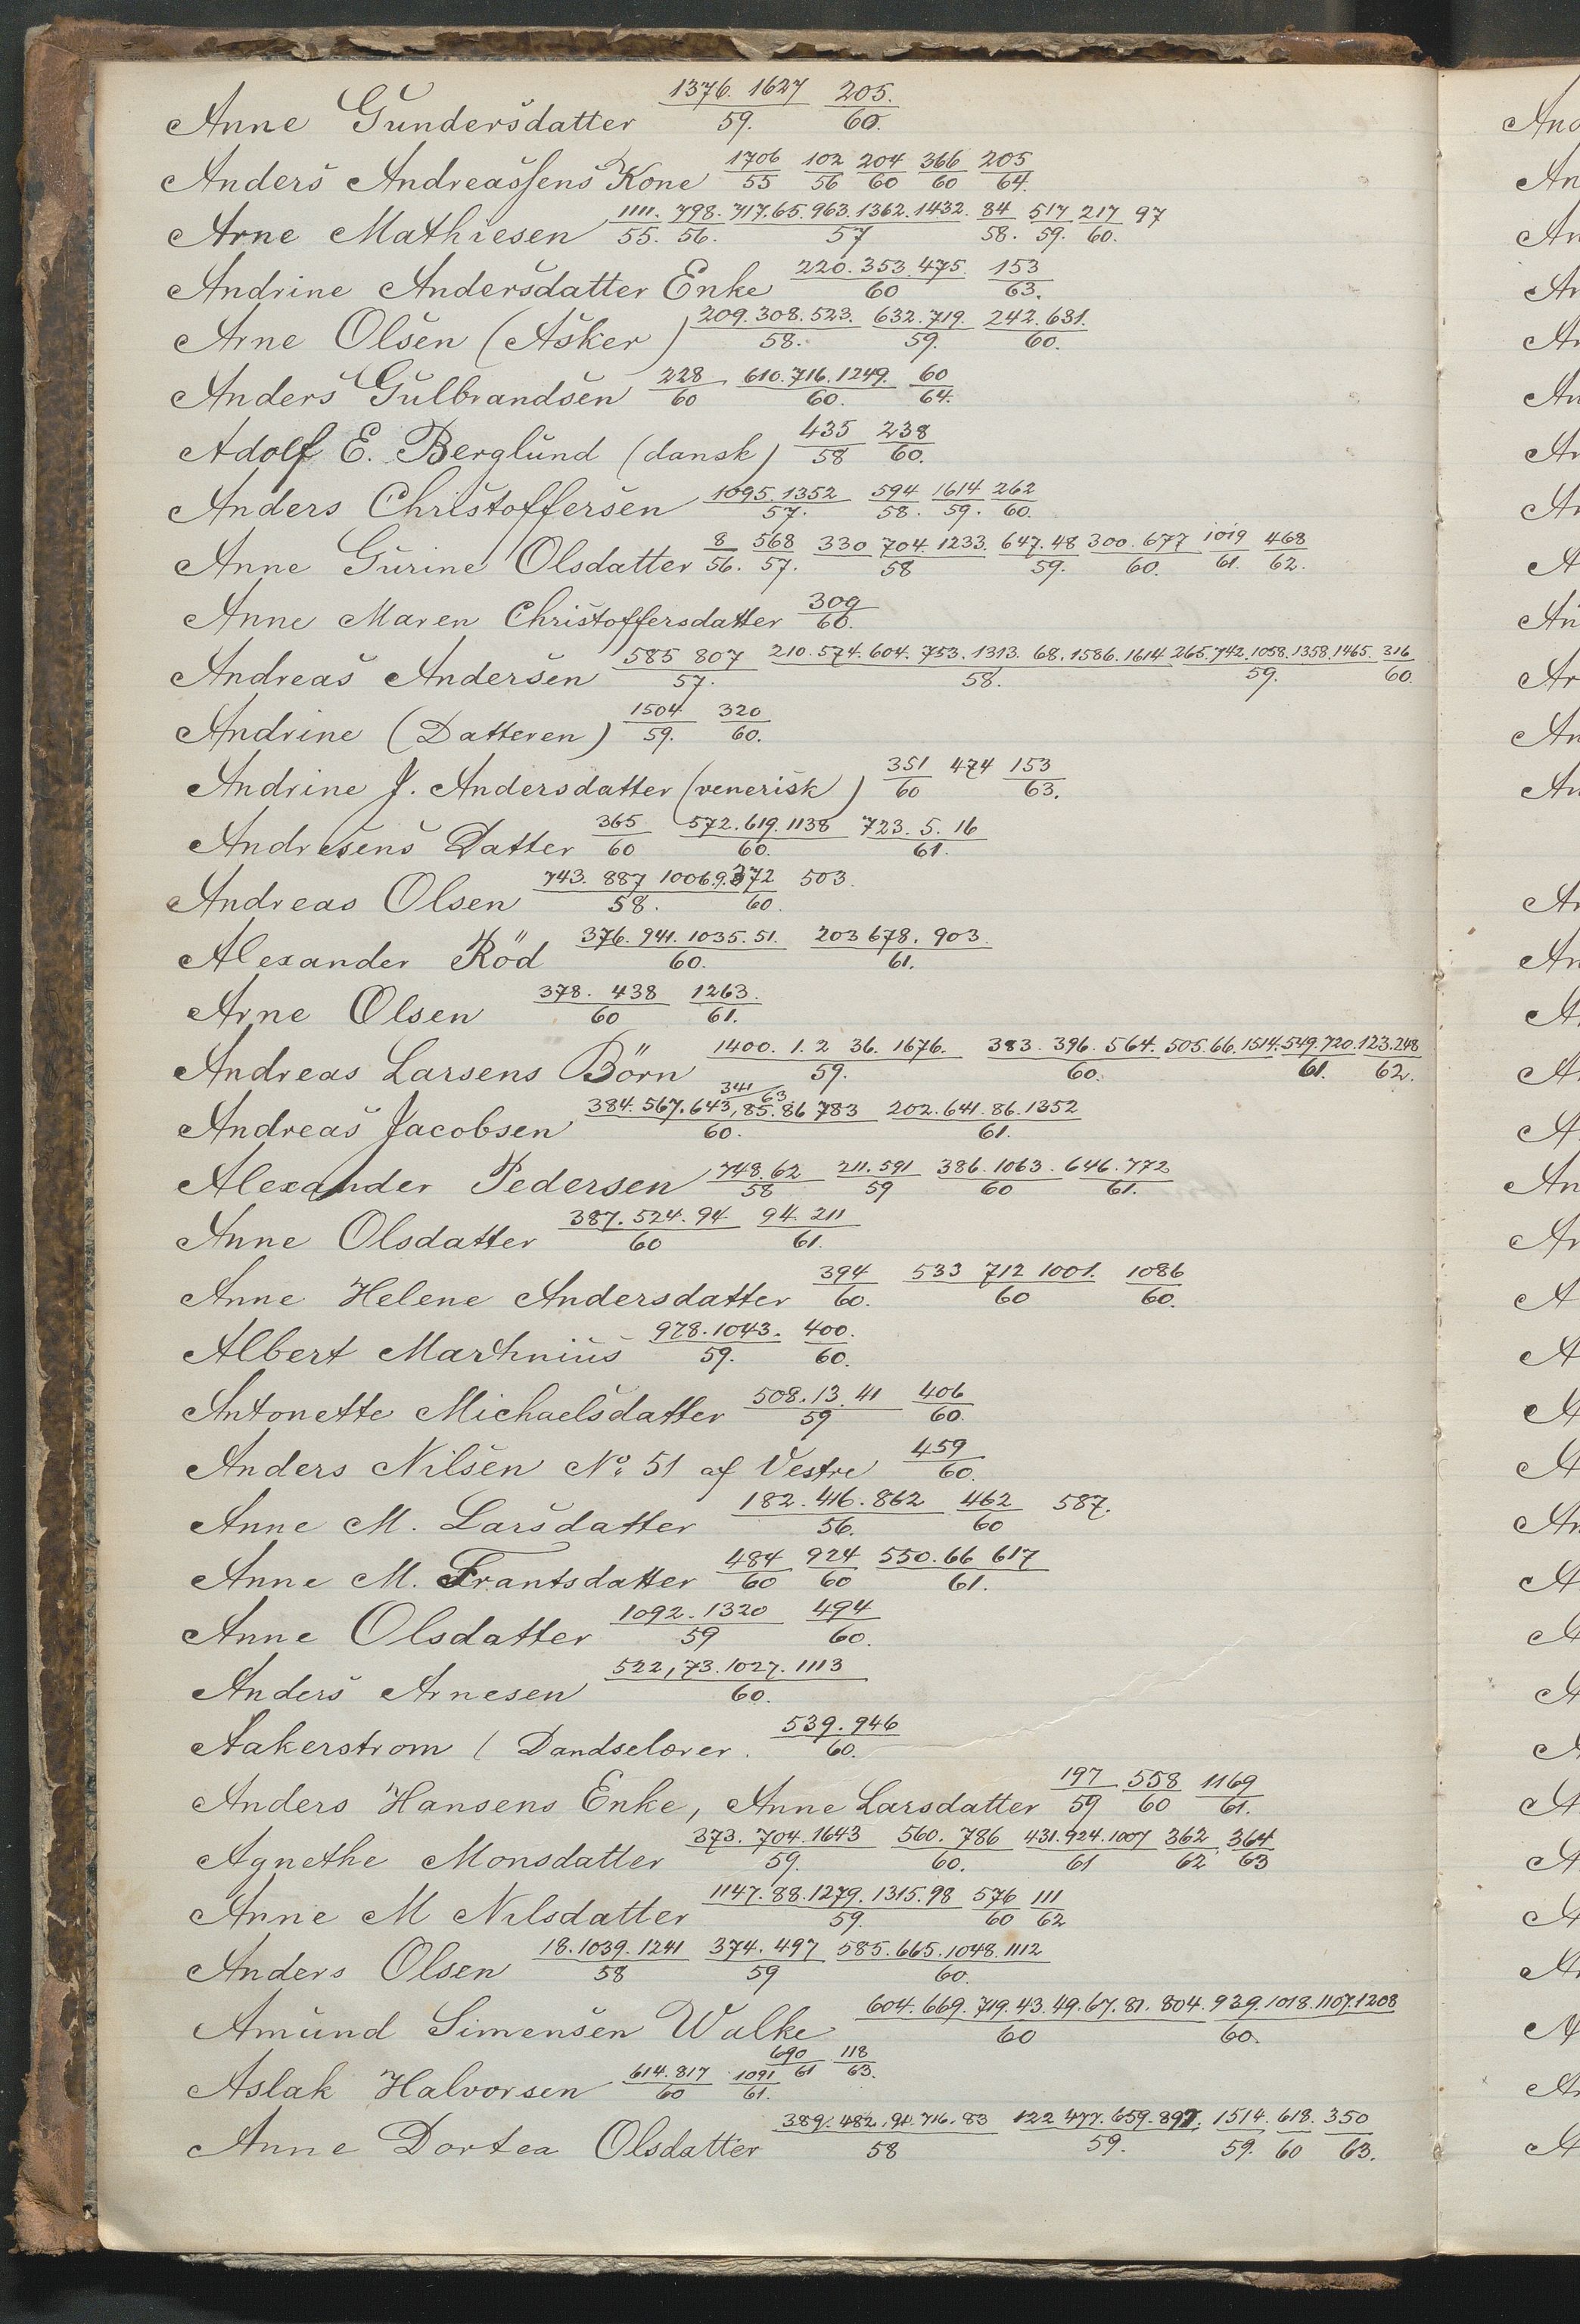 Anne Gundersdatter 1376. 1627/59. 205./60.
Anders Andreassens Kone 1706/55 102/56 204/60 366/60 205/64.
Arne Mathiesen 1111./55. 798./56. 717.65.963.1362.1432./57 84/58. 517/59. 217/60. 97
Andrine Andersdatter Enke 220.353.475/60 153/63.
Arne Olsen (Asker) 209.308.523./58. 632.719./59. 242.631./60.
Anders Gulbrandsen 228/60 610.716.1249./60. 60/64.
Adolf E. Berglund (dansk) 435/58 238/60.
Anders Christoffersen 1095.1352/57. 594/58. 1614/59. 262/60.
Anne Gurine Olsdatter 8/56. 568/57. 330 704. 1233./58 647.48/59. 300. 677/60. 1019/61. 468/62.
Anne Maren Christoffersdatter 309/60.
Andreas Andersen 585 807/57. 210.574.604.753.1313.68.1586.1614/58. 265.742.1058.1358.1465./59. 316/60.
Andrine (Datteren) 1504/59. 320/60.
Andrine J. Andersdatter (venerisk) 351/60 474 153/63.
Andresens Datter 365/60 572.619.1138/60. 723.5.16/61.
Andreas Olsen 743. 887 1006.9./58. 372/60. 503.
Alexander Röd 376.941.1035.51./60. 203 678. 903./61.
Arne Olsen 378. 438/60 1263./61.
Andreas Larsens Börn 1400. 1. 2 36. 1676./59. 383. 396. 564. 505.66.1514./60. 549.720./61. 123.248/62.
341/63.
Andreas Jacobsen 384.567.643,85.86 783/60. 202.641.86.1352/61.
Alexander Pedersen 748.62/58 211.591/59 386.1063./60 646.772/61.
Anne Olsdatter 387.524.94/60 94. 211/61.
Anne Helene Andersdatter 394/60. 533 712 1001./60 1086/60.
Albert Marthnius 978.1043./59. 400./60.
Antonette Michaelsdatter 508.13.41/59 406/60.
Anders Nilsen No. 51 af Vestre 459/60.
Anne M. Larsdatter 182.416.862/56. 462/60 587.
Anne M. Frantsdatter 484/60 924/60 550.66 617/61.
Anne Olsdatter 1092.1320/59 494/60.
Anders Arnesen 522,73.1027.1113/60.
Aakerstrom ( Dandselærer. 539.946/60.
Anders Hansens Enke, Anne Larsdatter 197/59 558/60 1169/61.
Agnethe Monsdatter 373. 704.1643/59. 560. 786/60. 431.924.1007/61 362/62 364/63
Anne M Nilsdatter 1147.88.1279.1315.98/59. 576/60 111/62
Anders Olsen 18.1039.1241/58 374.497/59 585.665.1048.1112/60.
Amund Simensen Walke 604.669.719.43.49.67.81.804./60 929.1018.1107.1208/60.
690/61 118/63.
Aslak Halvorsen 614.817/60 1091/61.
Anne Dortea Olsdatter 389.482.91.716.83/58 122 477.659.897./59. 1514/59. 618./60 350/63.
Ana
An
An
An
Ar
An
Ar
An
A
An
Ar
An
An
Ar
An
A
A
A
An
Ar
A
A
A
A
An
A
A
A
A
A
A
A
Ar
A
A
A